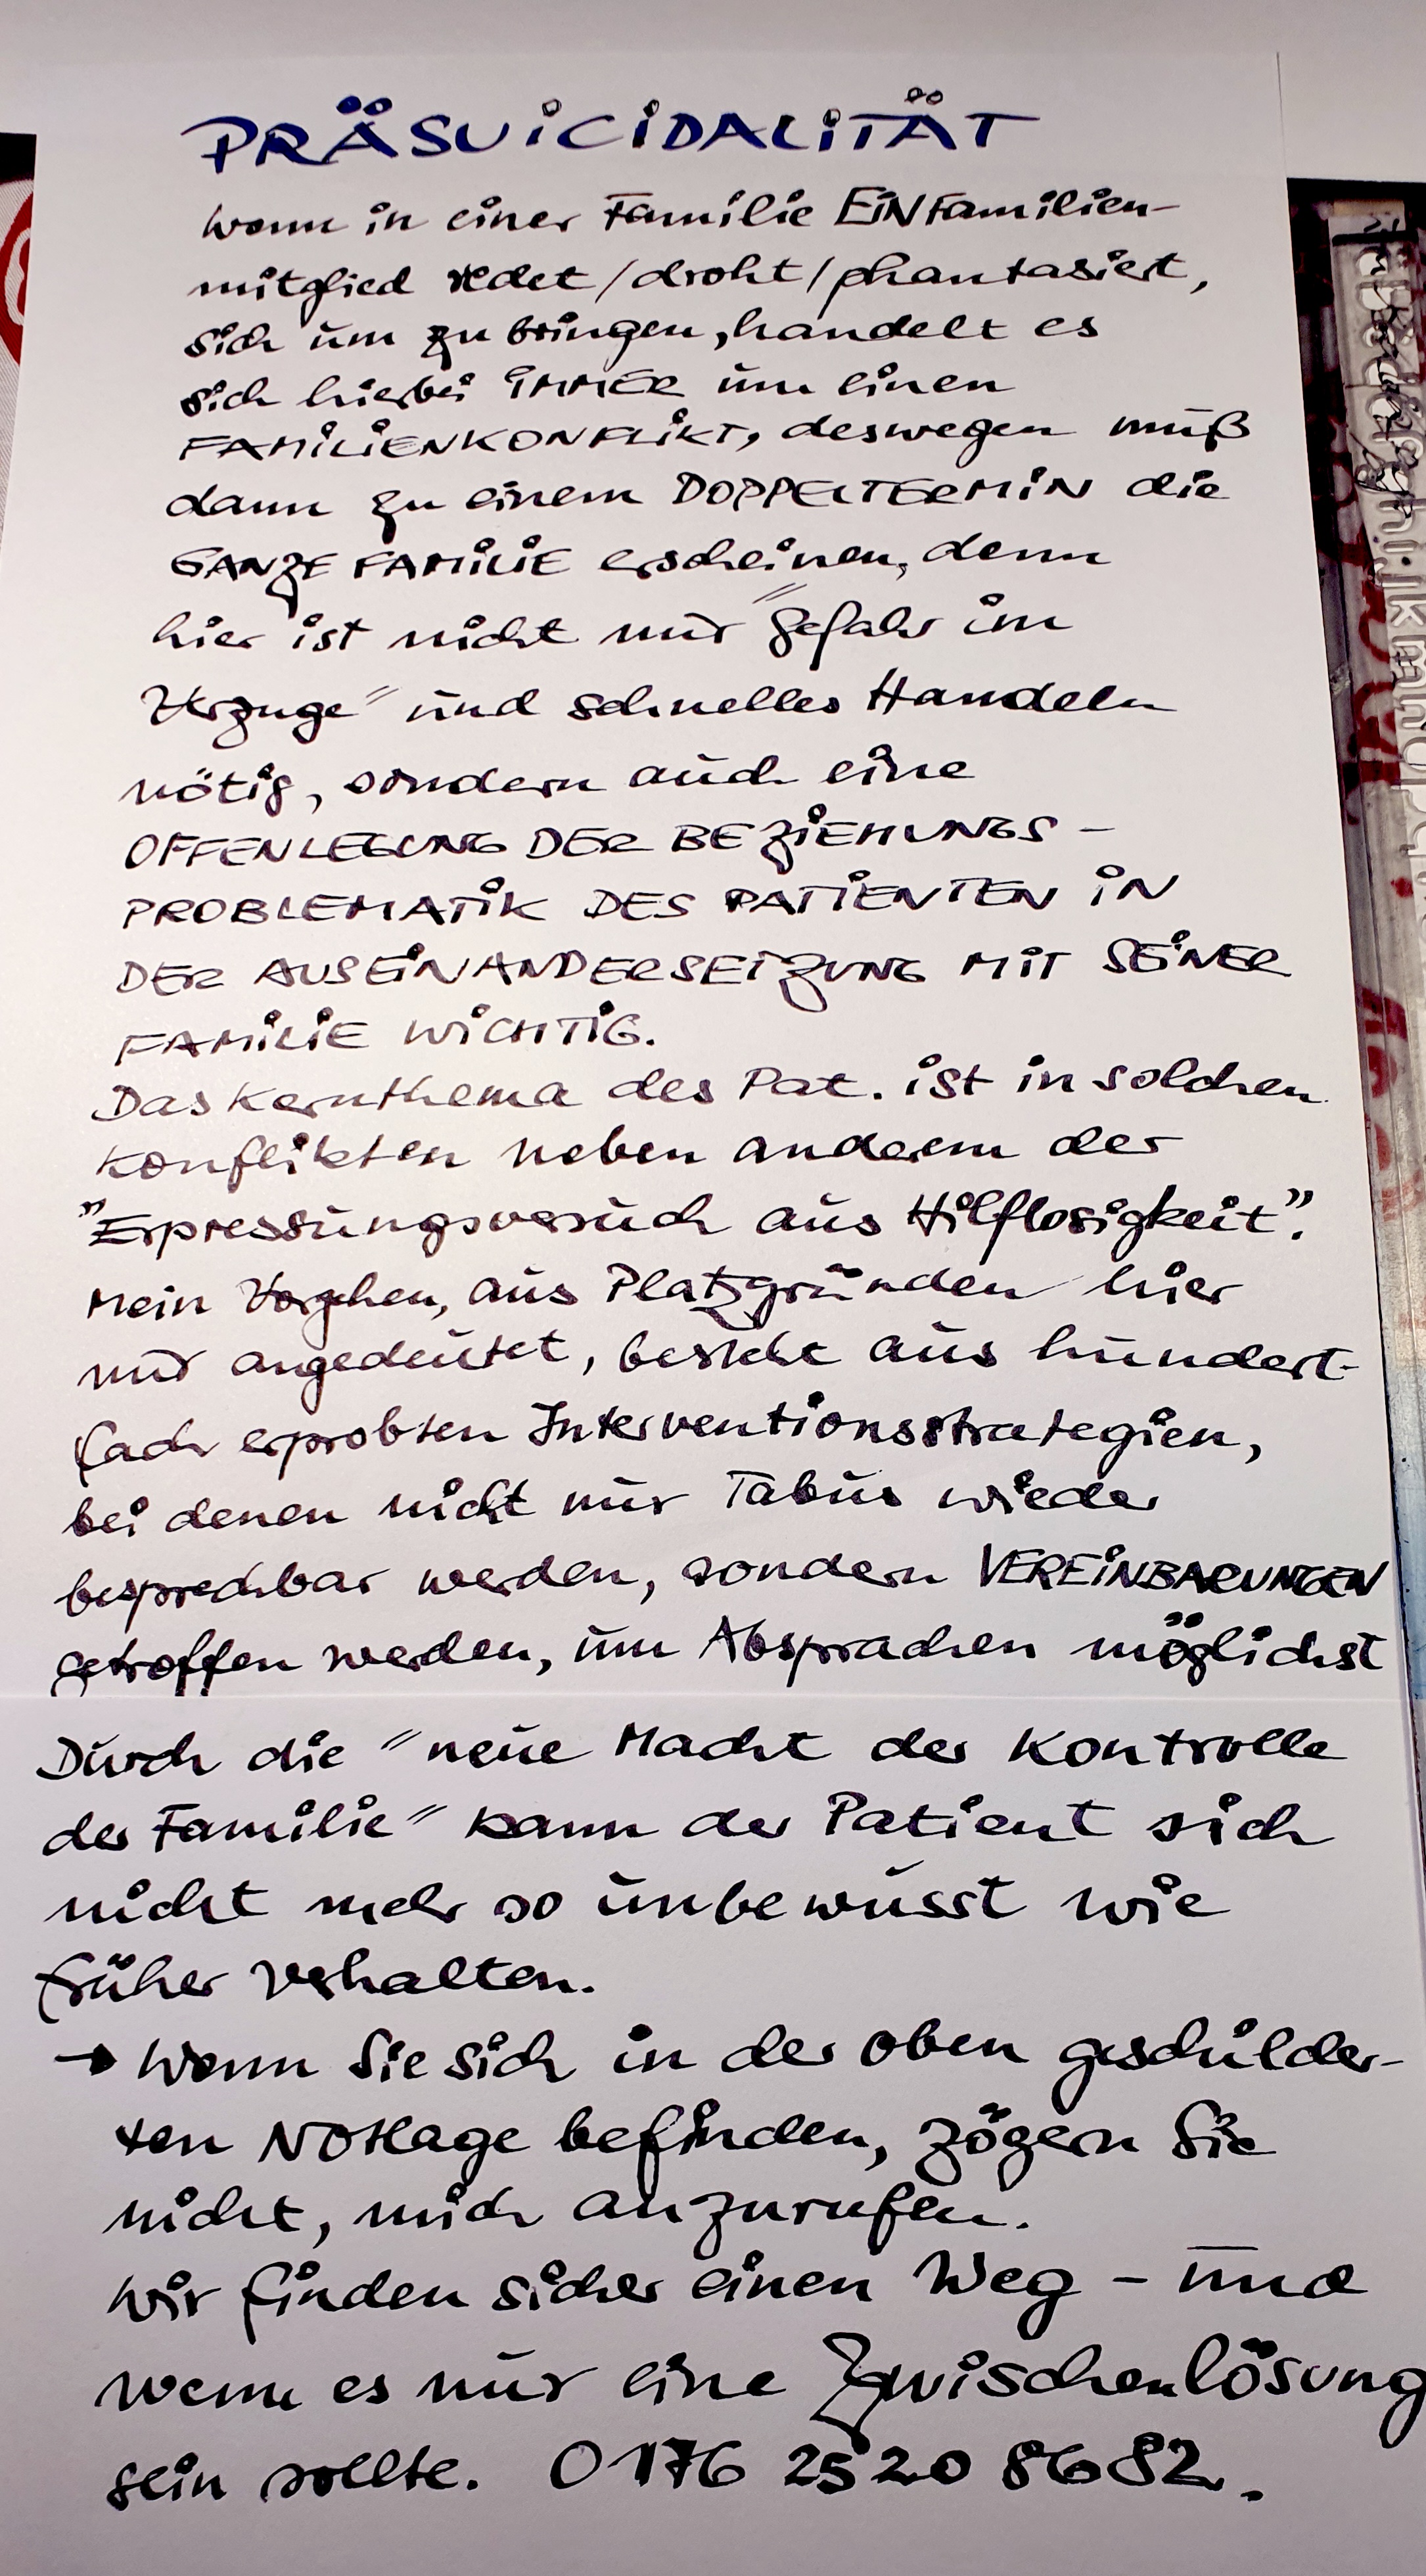 PRÄSUICIDALITÄT
Wenn in einer Familie EIN Familien-
mitglied redet/droht/phantasiert,
sich um zu bringen, handelt es
sich hierbei IMMER um einen
FAMILIENKONFLIKT, deswegen muß
dann zu einem DOPPELTERMIN die
GANZE FAMILIE erscheinen, denn
hier ist nicht nur "Gefahr im
Verzuge" und schnelles Handeln
nötig, sondern auch eine
OFFENLEGUNG DER BEZIEHUNGS-
PROBLEMATIK DES PATIENTEN IN
DER AUSEINANDERSETZUNG MIT SEINER
FAMILIE WICHTIG.
Das Kernthema des Pat. ist in solchen
Konflikten neben anderem der
"Erpressungsversuch aus Hilflosigkeit".
Mein Vorgehen, aus Platzgründen hier
nur angedeutet, besteht aus hundert-
fach erprobten Interventionsstrategien,
bei denen nicht nur Tabus wieder
besprechbar werden, sondern VEREINBARUNGEN
getroffen werden, um Absprachen möglichst
Durch die "neue Macht der Kontrolle
der Familie" kann der Patient sich
nicht mehr so unbewusst wie
früher verhalten.
→ Wenn Sie sich in der oben geschilder-
ten Notlage befinden, zögern Sie
nicht, mich anzurufen.
Wir finden sicher einen Weg – und
wenn es nur eine Zwischenlösung
sein sollte. 0176 2520 8682.